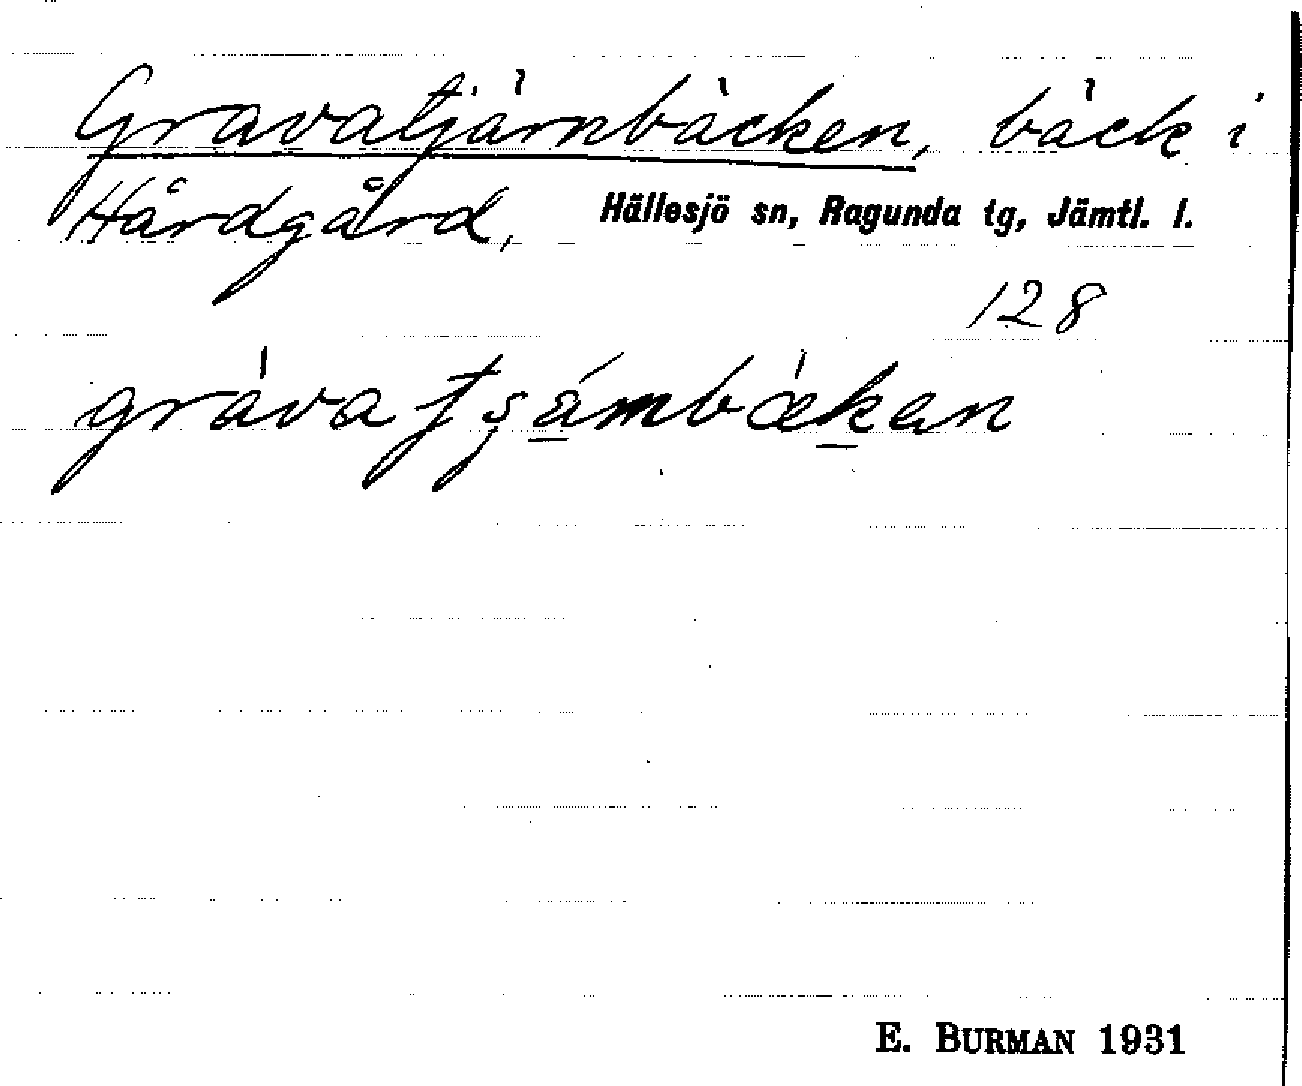 Gravatjärnbäcken, bäck i
Hårdgård, Hällesjö sn, Ragunda tg, Jämtl. l.
128
gràvatʂámbækan
E. BURMAN 1931